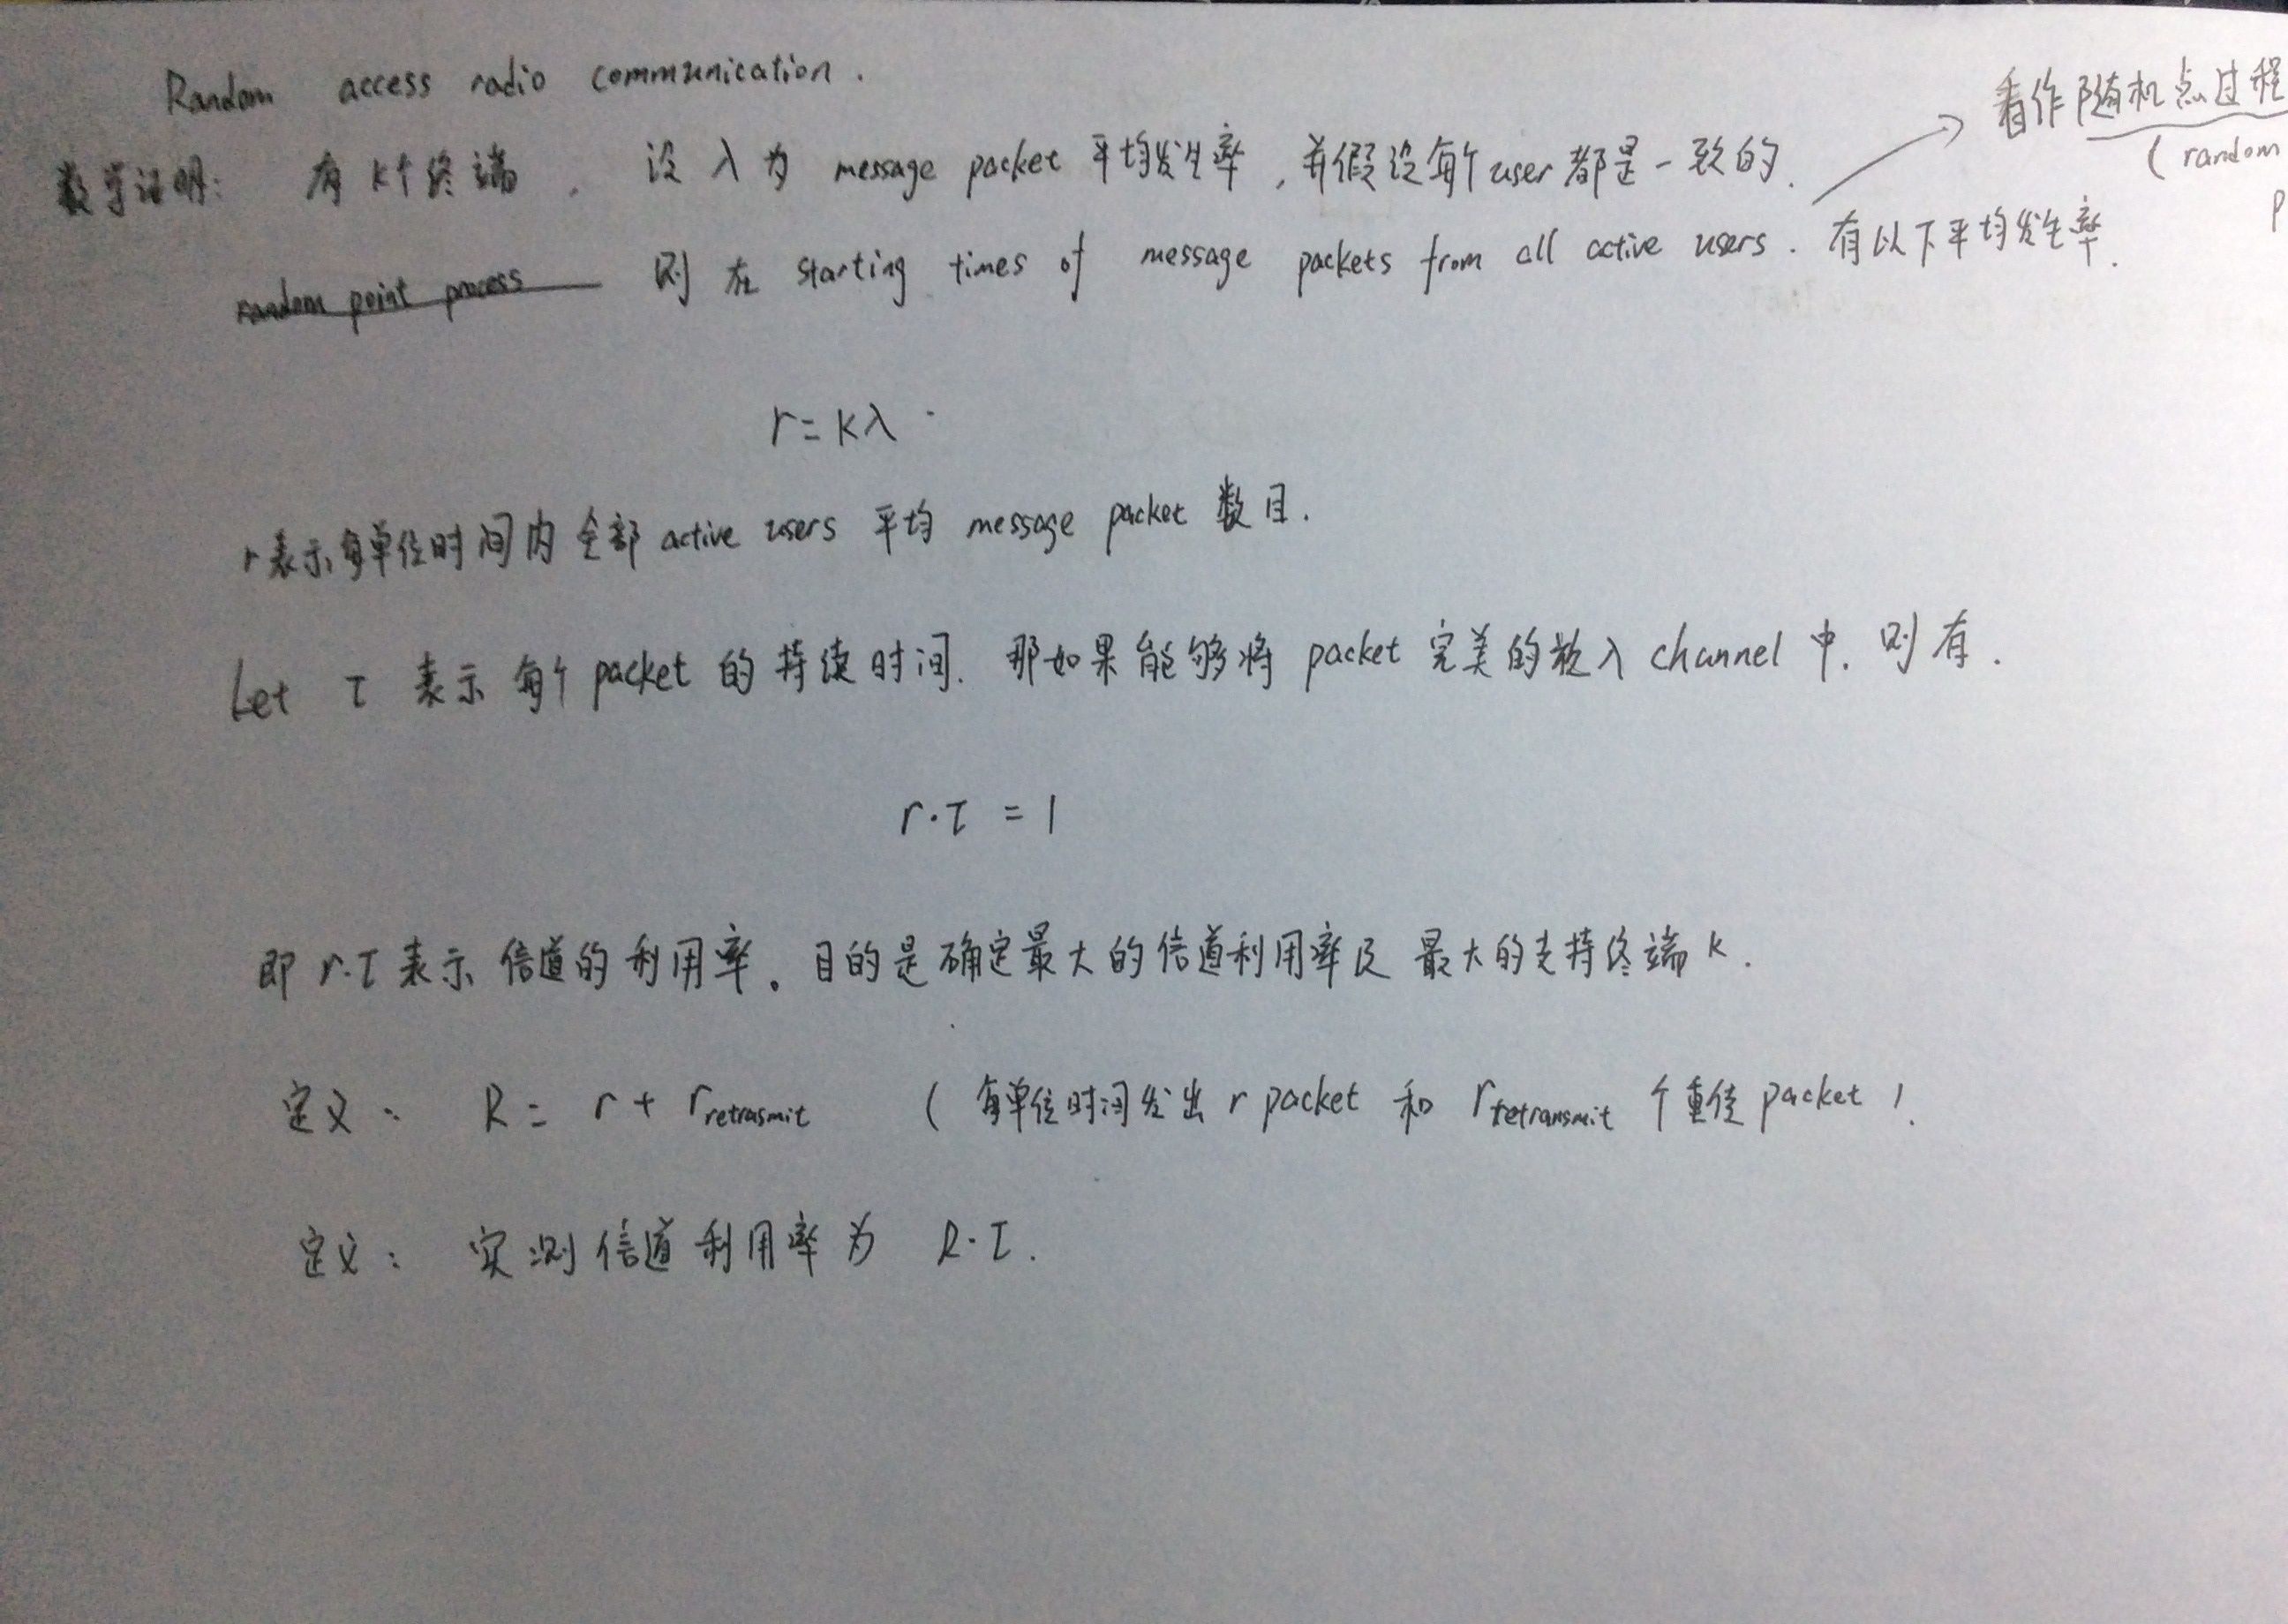 Random access radio communication.
看作随机点过程
数学证明: 有 k个终端, 设 λ 为 message packet 平均发生率, 并假设每个user都是一致的.
(random
p
random point process 则 在 starting times of message packets from all active users. 有以下平均发生率.
r = kλ.
r表示每单位时间内全部 active users 平均 message packet 数目.
Let τ 表示每个packet 的持续时间. 那如果能够将 packet 完美的放入 channel 中. 则有.
r·τ = 1
即 r·τ 表示信道的利用率。目的是确定最大的信道利用率及 最大的支持终端 k.
定义: R = r + r retrasmit ( 每单位时间发出 r packet 和 r retransmit 个重传 packet ).
定义: 实测信道利用率为 R·τ.